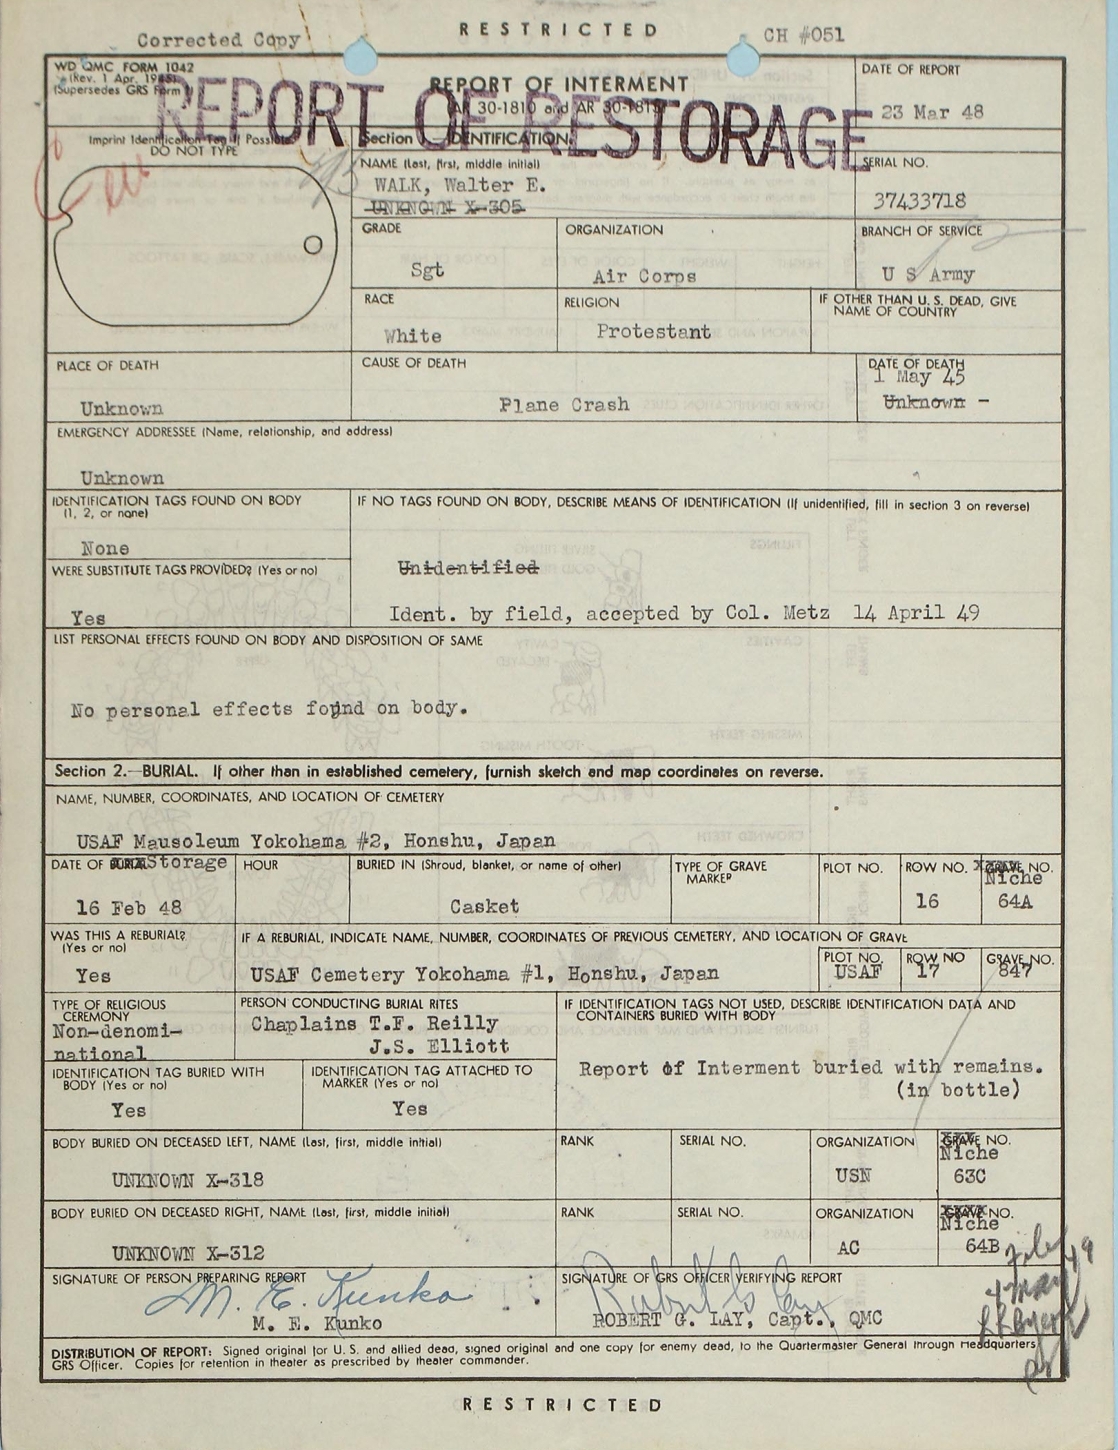 RESTRICTED
Corrected Copy
CH #051
WD QMC FORM 1042
(Rev. 1 Apr. 1945)
(Supersedes GRS Form 1)
REPORT OF INTERMENT
AR 30-1810 and AR 30-1815
REPORT OF RESTORAGE
DATE OF REPORT
23 Mar 48
Imprint Identification Tag If Possible
DO NOT TYPE
Section IDENTIFICATION.
NAME (Last, first, middle initial)
WALK, Walter E.
UNKNOWN X-305
SERIAL NO.
37433718
GRADE
Sgt
ORGANIZATION
Air Corps
BRANCH OF SERVICE
U S Army
RACE
White
RELIGION
Protestant
IF OTHER THAN U. S. DEAD, GIVE
NAME OF COUNTRY
PLACE OF DEATH
Unknown
CAUSE OF DEATH
Plane Crash
DATE OF DEATH
1 May 45
Unknown -
EMERGENCY ADDRESSEE (Name, relationship, and address)
Unknown
IDENTIFICATION TAGS FOUND ON BODY
(1, 2, or none)
None
IF NO TAGS FOUND ON BODY, DESCRIBE MEANS OF IDENTIFICATION (If unidentified, fill in section 3 on reverse)
Unidentified
Ident. by field, accepted by Col. Metz 14 April 49
WERE SUBSTITUTE TAGS PROVIDED? (Yes or no)
Yes
LIST PERSONAL EFFECTS FOUND ON BODY AND DISPOSITION OF SAME
No personal effects found on body.
Section 2.—BURIAL. If other than in established cemetery, furnish sketch and map coordinates on reverse.
NAME, NUMBER, COORDINATES, AND LOCATION OF CEMETERY
USAF Mausoleum Yokohama #2, Honshu, Japan
DATE OF Storage
16 Feb 48
HOUR
BURIED IN (Shroud, blanket, or name of other)
Casket
TYPE OF GRAVE
MARKER
PLOT NO.
ROW NO.
16
GRAVE NO.
Niche
64A
WAS THIS A REBURIAL?
(Yes or no)
Yes
IF A REBURIAL, INDICATE NAME, NUMBER, COORDINATES OF PREVIOUS CEMETERY, AND LOCATION OF GRAVE
USAF Cemetery Yokohama #1, Honshu, Japan
PLOT NO.
USAF
ROW NO
17
GRAVE NO.
847
TYPE OF RELIGIOUS
CEREMONY
Non-denomi-
national
PERSON CONDUCTING BURIAL RITES
Chaplains T.F. Reilly
J.S. Elliott
IF IDENTIFICATION TAGS NOT USED, DESCRIBE IDENTIFICATION DATA AND
CONTAINERS BURIED WITH BODY
Report of Interment buried with remains.
(in bottle)
IDENTIFICATION TAG BURIED WITH
BODY (Yes or no)
Yes
IDENTIFICATION TAG ATTACHED TO
MARKER (Yes or no)
Yes
BODY BURIED ON DECEASED LEFT, NAME (Last, first, middle initial)
UNKNOWN X-318
RANK
SERIAL NO.
ORGANIZATION
USN
GRAVE NO.
Niche
63C
BODY BURIED ON DECEASED RIGHT, NAME (Last, first, middle initial)
UNKNOWN X-312
RANK
SERIAL NO.
ORGANIZATION
AC
GRAVE NO.
Niche
64B
SIGNATURE OF PERSON PREPARING REPORT
M. E. Kunko
M. E. Kunko
SIGNATURE OF GRS OFFICER VERIFYING REPORT
Robert G. Lay
ROBERT G. LAY, Capt., QMC
File
4 May 49
DISTRIBUTION OF REPORT: Signed original for U. S. and allied dead, signed original and one copy for enemy dead, to the Quartermaster General through Headquarters
GRS Officer. Copies for retention in theater as prescribed by theater commander.
RESTRICTED